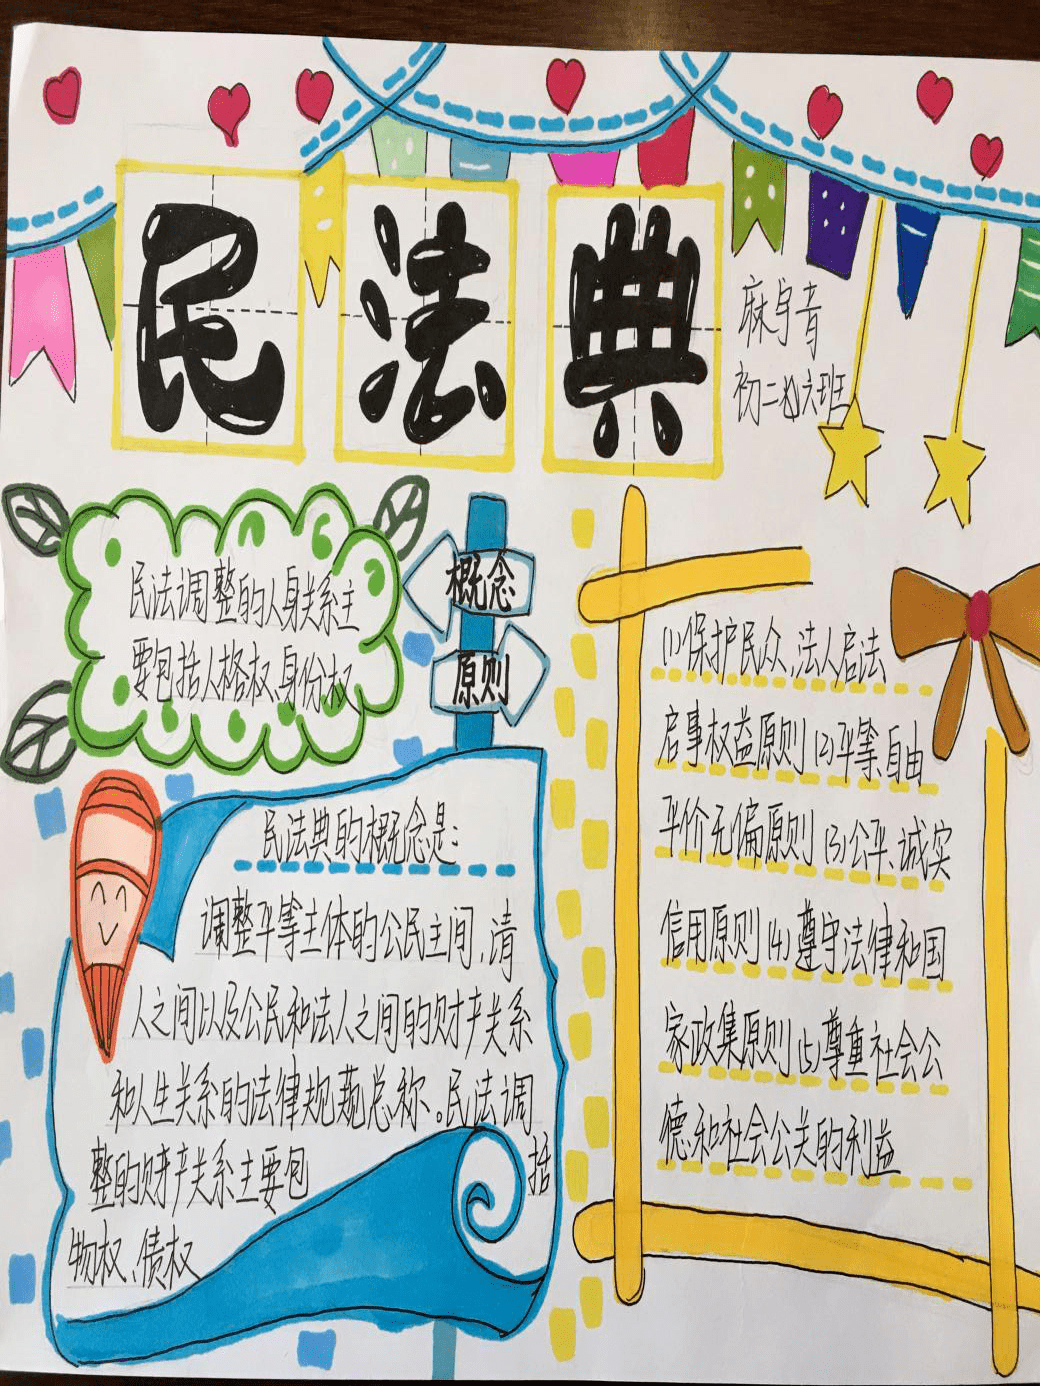 民法典
麻宇音
初二(6)六班
民法调整的人身关系主
要包括人格权、身份权
概念
原则
民法典的概念是:
调整平等主体的公民之间,清
人之间以及公民和法人之间的财产关系
和人生关系的法律规范总称。民法调
整的财产关系主要包 括
物权、债权
(1)保护民众、法人启法
启事权益原则(2)平等、自由
平价无偏原则(3)公平、诚实
信用原则(4)遵守法律和国
家政集原则(5)尊重社会公
德和社会公关的利益